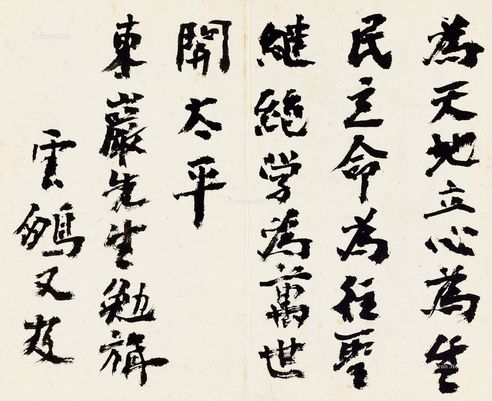 為天地立心為生
民立命為往聖
継絶学為萬世
開太平
東巖先生勉旃
雲 又